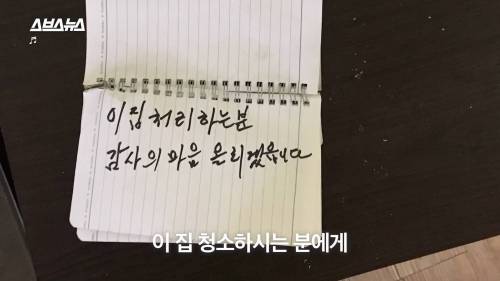 스브스뉴스
이 집 처리하는분
감사의 마음 올리겠읍니다
이 집 청소하시는 분에게